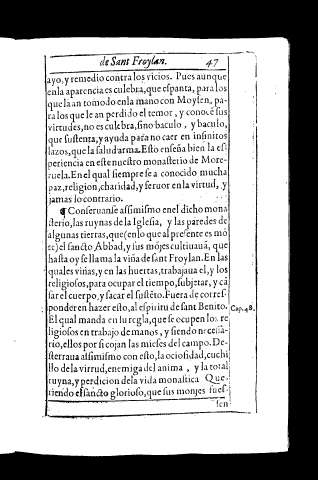 de Sant Froylan. 47
ayo, y remedio contra los vicios. Pues aunque
enla aparencia es culebra, que espanta, para los
que la an tomodo enla mano con Moysen, pa-
ra los que le an perdido el temor, y conocē sus
virtudes, no es culebra, sino baculo, y baculo,
que sustenta, y ayuda para no caer en infinitos
lazos, que la salud arma. Esto enseña bien la es
periencia en este nuestro monasterio de More-
ruela. En el qual siempre se a conocido mucha
paz, religion, charidad, y feruor en la virtud, y
jamas lo contrario.
¶ Conseruanse assimismo enel dicho mona
sterio, las ruynas de la Iglesia, y las paredes de
algunas tierras, que (enlo que al presente es mō
te) el sancto Abbad, y sus mōjes cultiuauā, que
hasta oy se llama la viña de sant Froylan. En las
quales viñas, y en las huertas, trabajaua el, y los
religiosos, para ocupar el tiempo, subjetar, y cā
sar el cuerpo, y sacar el sustēto. Fuera de corres-
ponder en hazer esto, al espiritu de sant Benito.
Cap. 48.
El qual manda en su regla, que se ocupen los re
ligiosos en trabajo de manos, y siendo necessa-
rio, ellos por si cojan las mieses del campo. De-
sterraua assimismo con esto, la ociosidad, cuchi
llo de la virrud, enemiga del anima, y la total
ruyna, y perdicion dela vida monastica Que-
riendo el sancto glorioso, que sus monjes fues-
sen